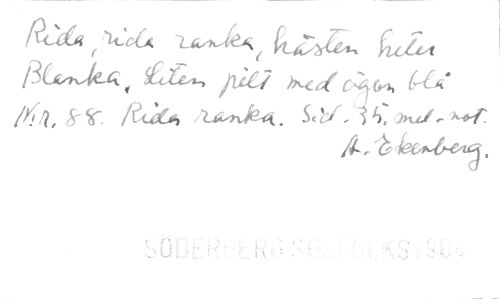 Rida, rida ranka, hästen heter
Blanka. Liten pilt med ögon blå
N:r. 88. Rida ranka. Sid. 35. mel. not.
A. Ekenberg.
SÖDERBERG